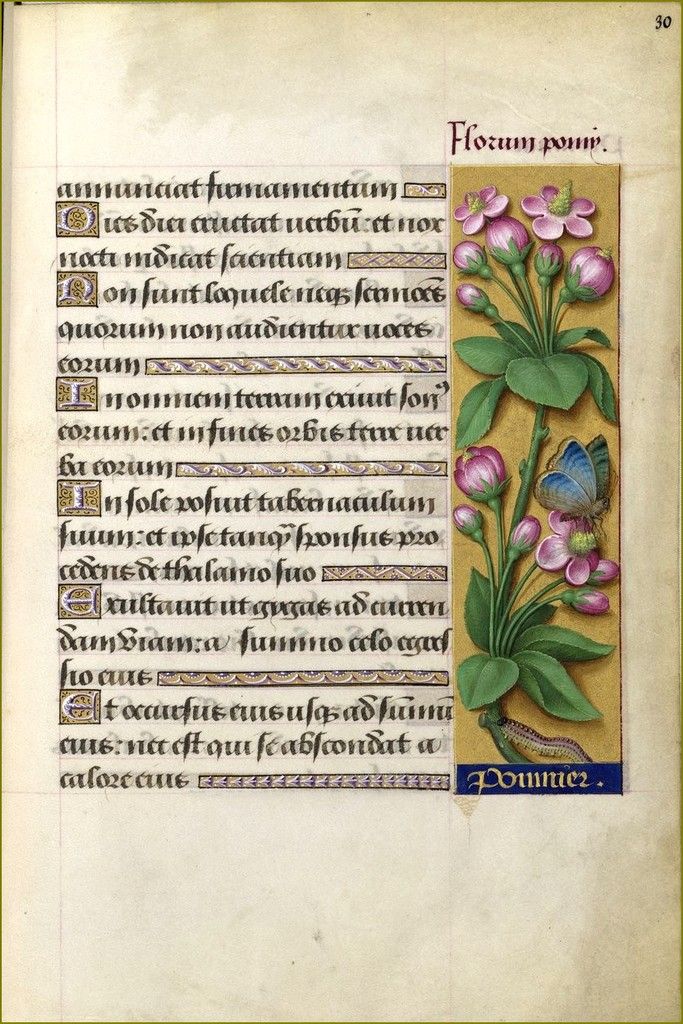 30
Florum pomy.
annunciat firmamentum
Dies diei eructat uerbū: et nox
nocti indicat scientiam
Non sunt loquele neqꝫ sermões
quorum non audientur uoces
eorum
In omnem terram exiuit sonꝰ
eorum: et in fines orbis terre uer
ba eorum
In sole posuit tabernaculum
suum: et ipse tanqꝫ sponsus pro
cedens de thalamo suo
Exultauit ut gygas ad curren
dam viam: a summo celo egres
sio eius
Et occursus eius usqꝫ ad summū
eius: nec est qui se abscondat a
calore eius
Pommier.